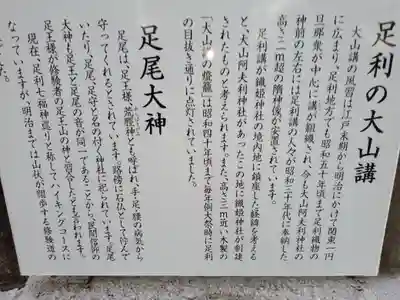 足利の大山講
大山講の風習は江戸末期から明治にかけて関東一円
に広まり、足利地方でも昭和五十年頃まで足利織物の
旦那衆が中心に講が組織され、今も大山阿夫利神社の
神前の左右には足利講の人々が昭和三十年代に奉納した
高さ三m超の隋神像が安置されています。
足利講が織姫神社の境内地に鎮座した経緯を考える
と、大山阿夫利神社があったこの地に織姫神社が創建
されたものと考えられます。また、高さ三m近い木製の
「大山講の燈籠」は昭和四十年頃まで毎年例大祭時に足利
の目抜き通りに点灯されていました。
足尾大神
足尾は、足王様、荒脛神とも呼ばれ、手・足・腰の病気から
守ってくれるとされています。路傍に石仏として佇んで
いたり、足尾、足守と名の付く神社に祀られています。足尾
大神も足王と足尾の音が同一であることから、民間信仰の
足王様が修験者の足王山の神と習合したとも言われます。
現在、足利七福神巡りと称してハイキングコースに
なっていますが、明治までは山伏が闊歩する修験道の